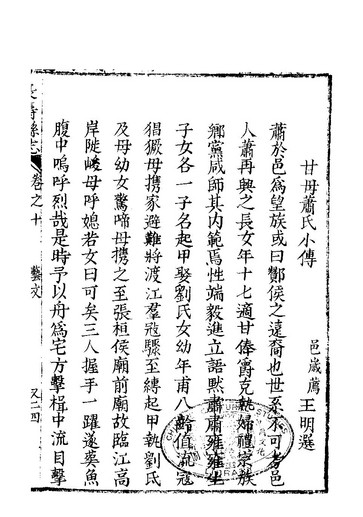 甘母蕭氏小傳
邑歲薦王明選
蕭於邑爲望族或曰酇侯之遠裔也世系不可考邑
人蕭再興之長女年十七適甘俸爵克執婦禮宗族
鄉黨咸師其內範焉性端毅進立語默肅肅雍雍生
子女各一子名起甲娶劉氏女幼年甫八齡值流寇
猖獗母携家避難將渡江羣寇驟至縛起甲執劉氏
及母幼女驚啼母携之至張桓侯廟前廟故臨江高
岸陡峻母呼媳若女曰可矣三人握手一躍遂葬魚
腹中嗚呼烈哉是時予以舟爲宅方擊楫中流目擊
長壽縣志
卷之十
藝文
又二四